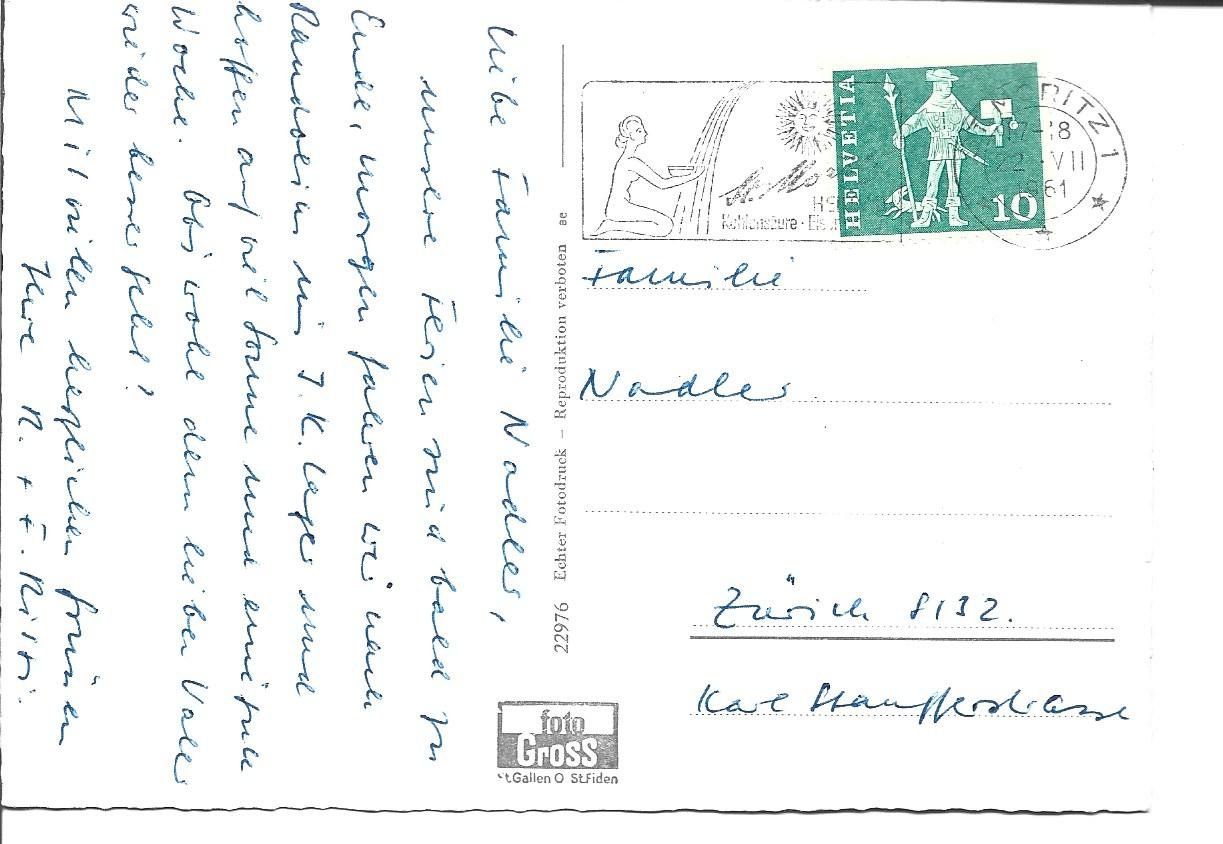 Liebe Familie Nadler,
unsere Ferien sind bald zu
Ende, morgen fahren wir nach
Randolin ins J.K. Lager und
hoffen auf viel Sonne und eine frohe
Woche. Obs wohl dem lieben Vater
wieder besser geht?
Mit vielen herzlichen Grüssen
Ihre R. + F. Ritti.
22976 Echter Fotodruck – Reproduktion verboten
foto
Gross
St.Gallen O St.Fiden
HELVETIA
10
RITZ 1
17-18
22. VII
61
Kohlensäure
Familie
Nadler
Zürich 8/32.
Karl Staufferstrasse